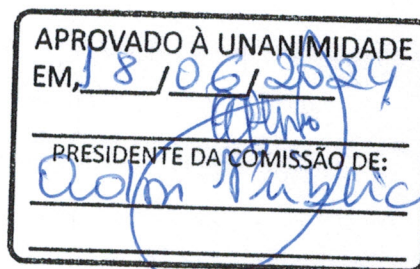 APROVADO À UNANIMIDADE
EM, 18/06/2024
PRESIDENTE DA COMISSÃO DE:
Adm Public